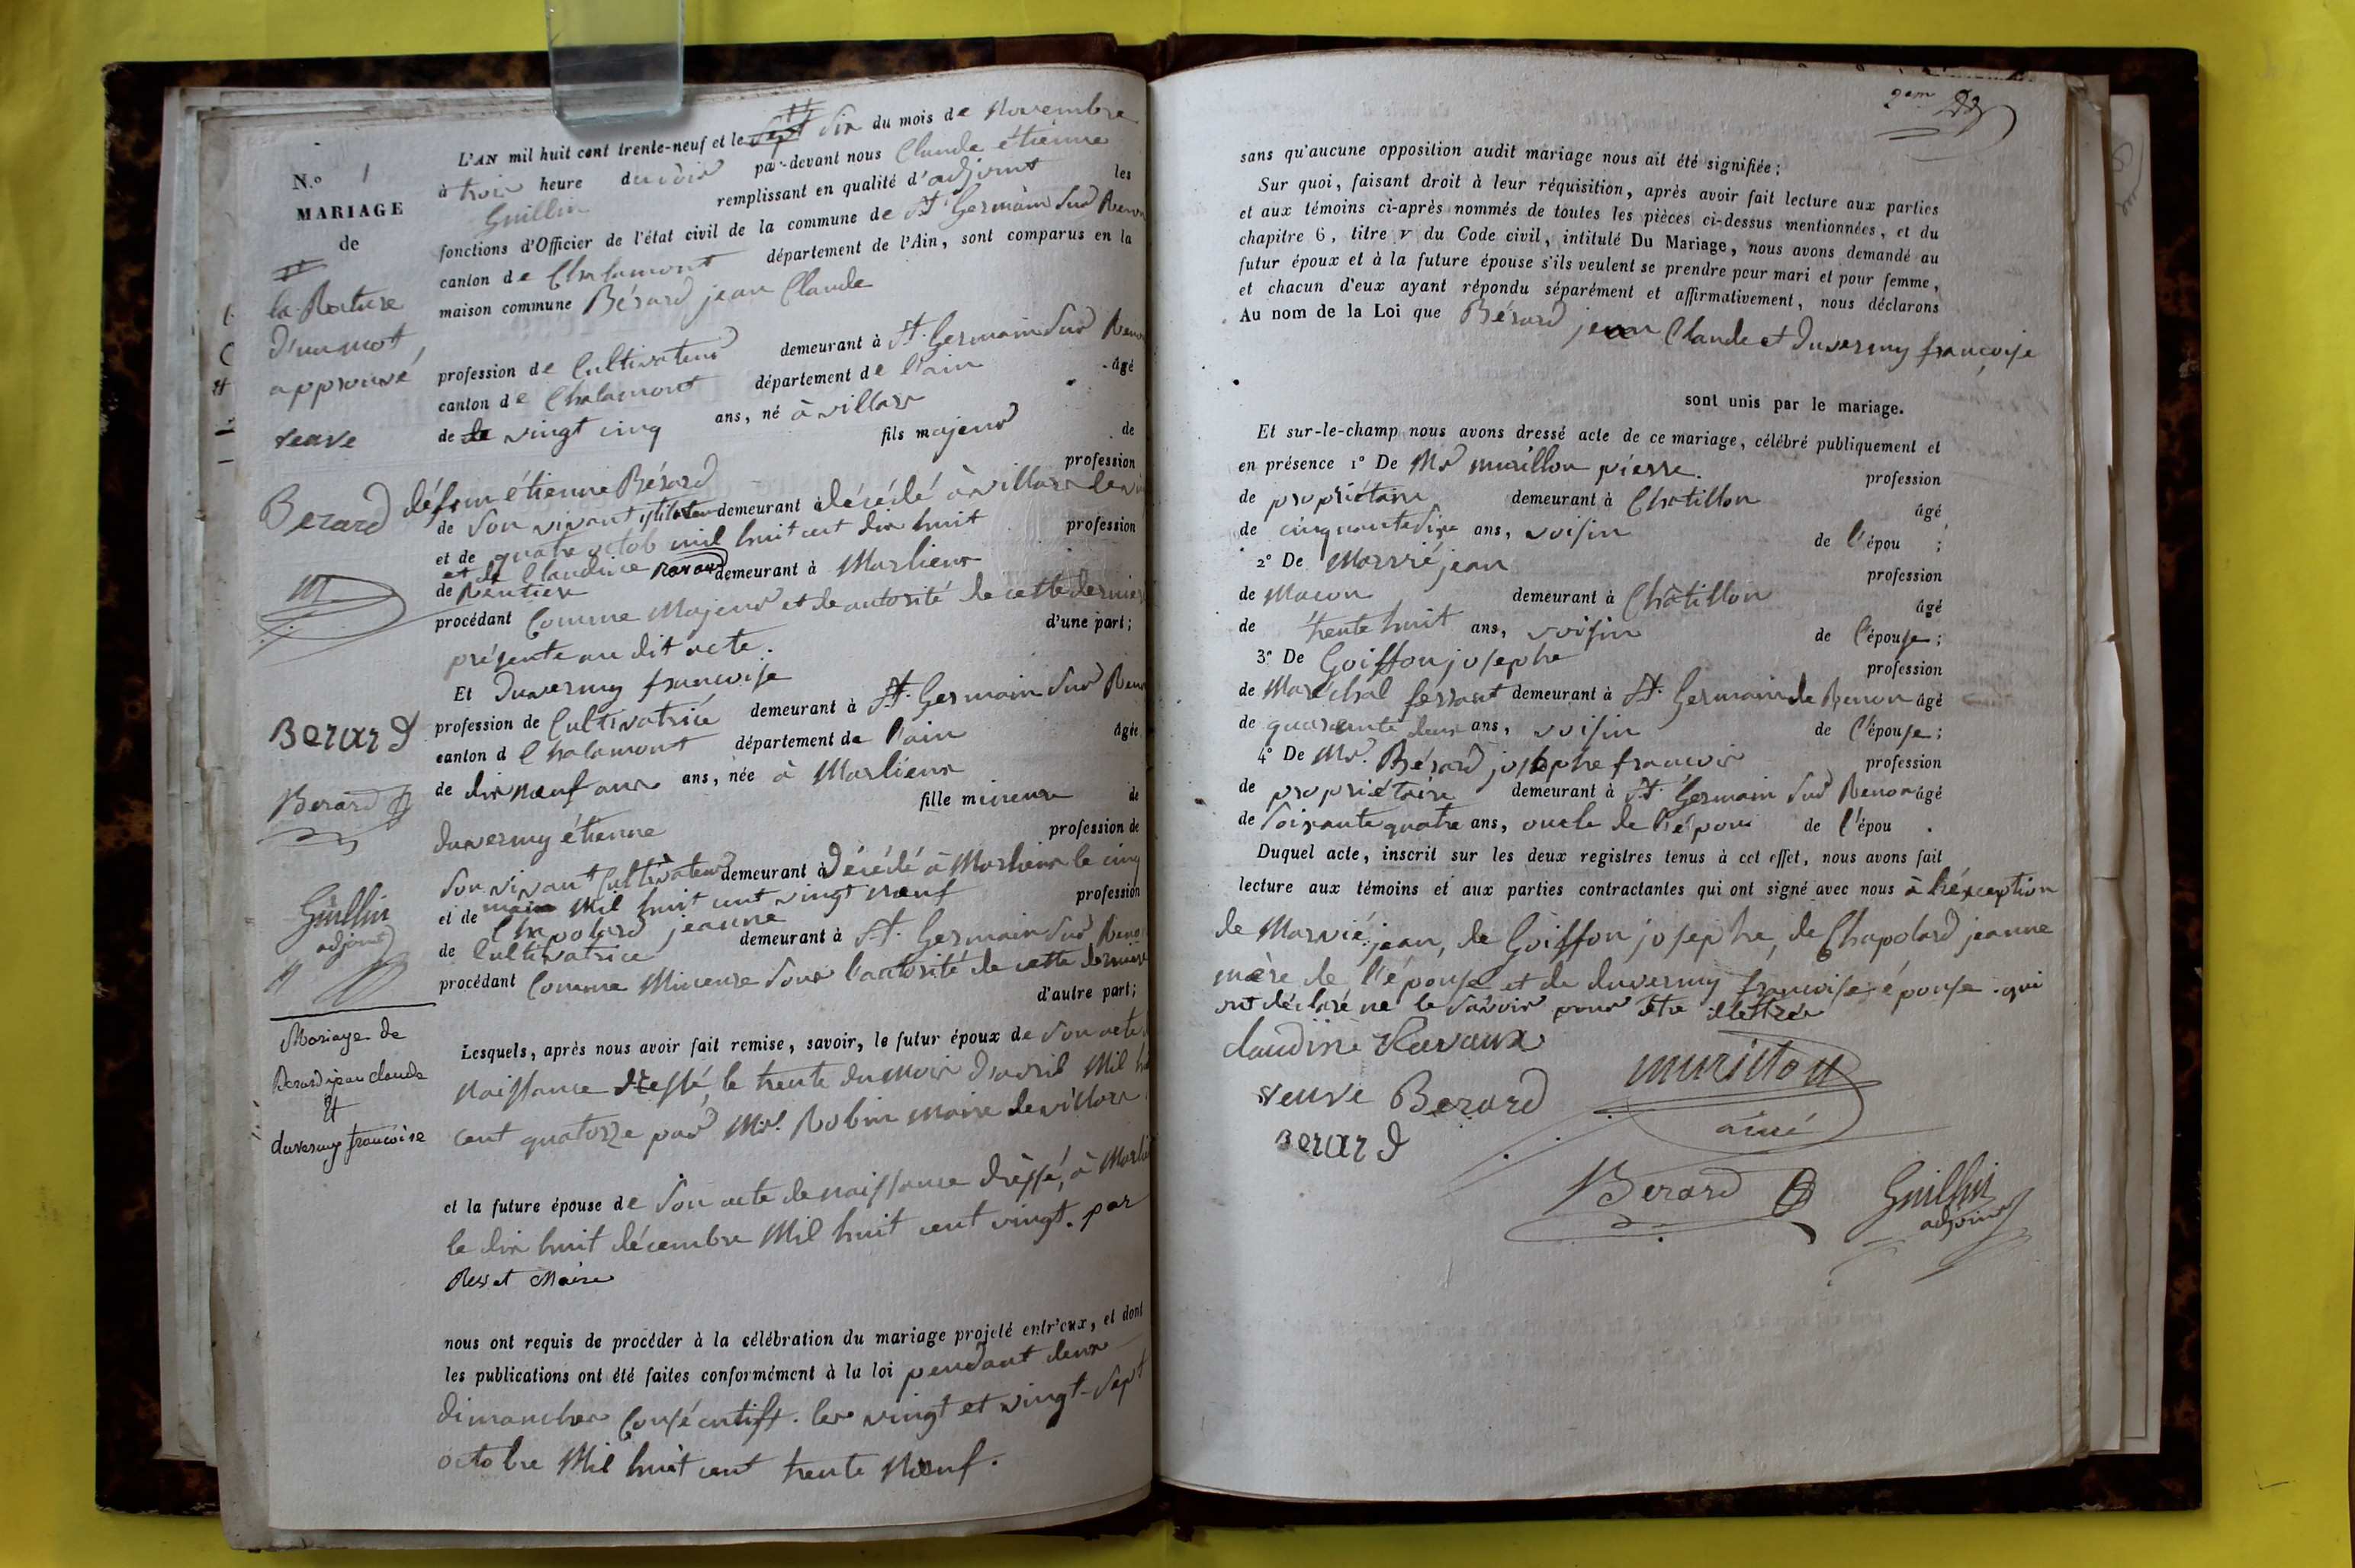 N.o 1
MARIAGE
de
la Rature
d'un mot
approuvé
veuve
Berard
Berard
Berard
Guillin
adjoint
Mariage de
Berard jean claude
Et
duvernay francoise
L'AN mil huit cent trente-neuf et le sept six du mois de Novembre
à trois heure du soir par-devant nous Claude étienne
Guillin remplissant en qualité d'adjoint les
fonctions d'Officier de l'état civil de la commune de St. Germain sur Renon
canton de Chalamont département de l'Ain, sont comparus en la
maison commune Bérard jean Claude
profession de Cultivateur demeurant à St. Germain sur Renon
canton de Chalamont département de l'ain âgé
de vingt cinq ans, né à villars
fils majeur de
défun étienne Bérard profession
de son vivant demeurant à décédé à villars le
et de quatre octob mil huit cent dix huit profession
et de Claudine Ravaud
de Rentiere demeurant à Marlieux
procédant Comme Majeur et de autorité de cette derniere
présente au dit acte. d'une part;
Et Duvernay francoise
profession de Cultivatrice demeurant à St. Germain sur Renon
canton d Chalamont département de l'ain âgée
de dix neuf ans ans, née à Marlieux
fille mineure de
duvernay étienne profession de
son vivant Cultivateur demeurant à Décédé à Marlieux le cinq
et de mil huit cent vingt neuf profession
Chapolard jeanne
de Cultivatrice demeurant à St. Germain sur Renon
procédant Comme Mineure sous l'autorité de cette derniere
d'autre part;
Lesquels, après nous avoir fait remise, savoir, le futur époux de son acte
naissance dressé, le trente du mois d'avril Mil
cent quatorze par Mr. Robin maire de villars
et la future épouse de son acte de naissance dressé, à
le dix huit décembre Mil huit cent vingt. par
Maire
nous ont requis de procéder à la célébration du mariage projeté entr'eux, et dont
les publications ont été faites conformément à la loi pendant deux
dimanches Consécutifs. les vingt et vingt-sept
octobre Mil huit cent trente Neuf.
2em
sans qu'aucune opposition audit mariage nous ait été signifiée;
Sur quoi, faisant droit à leur réquisition, après avoir fait lecture aux parties
et aux témoins ci-après nommés de toutes les pièces ci-dessus mentionnées, et du
chapitre 6, titre v du Code civil, intitulé Du Mariage, nous avons demandé au
futur époux et à la future épouse s'ils veulent se prendre pour mari et pour femme,
et chacun d'eux ayant répondu séparément et affirmativement, nous déclarons
Au nom de la Loi que Bérard jean Claude et Duvernay francoise
sont unis par le mariage.
Et sur-le-champ nous avons dressé acte de ce mariage, célébré publiquement et
en présence 1o De Mr murillon pierre. profession
de propriétaire demeurant à Chatillon âgé
de cinquante six ans, voisin de l'épou ;
2o De Marvié jean profession
de Macon demeurant à Châtillon âgé
de trente huit ans, voisin de l'épouse;
3o De Goiffon josephe profession
de Maréchal ferrant demeurant à St. Germain de Renon âgé
de quarante deux ans, voisin de l'épouse;
4o De Mr. Bérard josephe francois profession
de propriétaire demeurant à St. Germain sur Renon âgé
de soixante quatre ans, oncle de l'époux de l'épou .
Duquel acte, inscrit sur les deux registres tenus à cet effet, nous avons fait
lecture aux témoins et aux parties contractantes qui ont signé avec nous à l'éxception
de Marvié jean, de Goiffon josephe, de Chapolard jeanne
mère de l'épouse et de duvernay francoise épouse qui
ont déclaré ne le savoir pour être illettrés
claudine Ravaux
veuve Berard
murillon
ainé
Berard
Berard
Guillin
adjoint